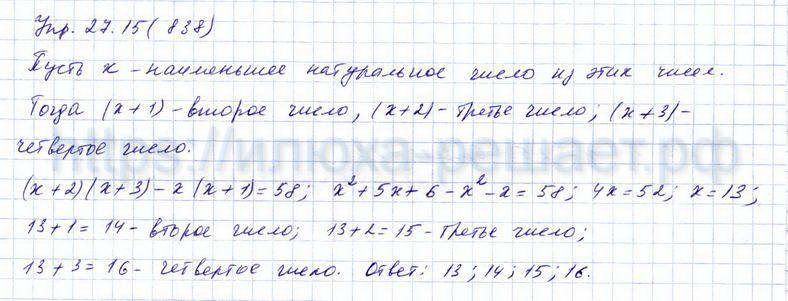 Упр. 27.15 (838)
Пусть x - наименьшее натуральное число из этих чисел.
Тогда (x+1) - второе число, (x+2) - третье число; (x+3) -
четвертое число.
https://илюха-решает.рф
(x+2)(x+3) - x(x+1) = 58; x²+5x+6-x²-x = 58; 4x = 52; x = 13;
13+1 = 14 - второе число; 13+2 = 15 - третье число;
13+3 = 16 - четвертое число. Ответ: 13; 14; 15; 16.